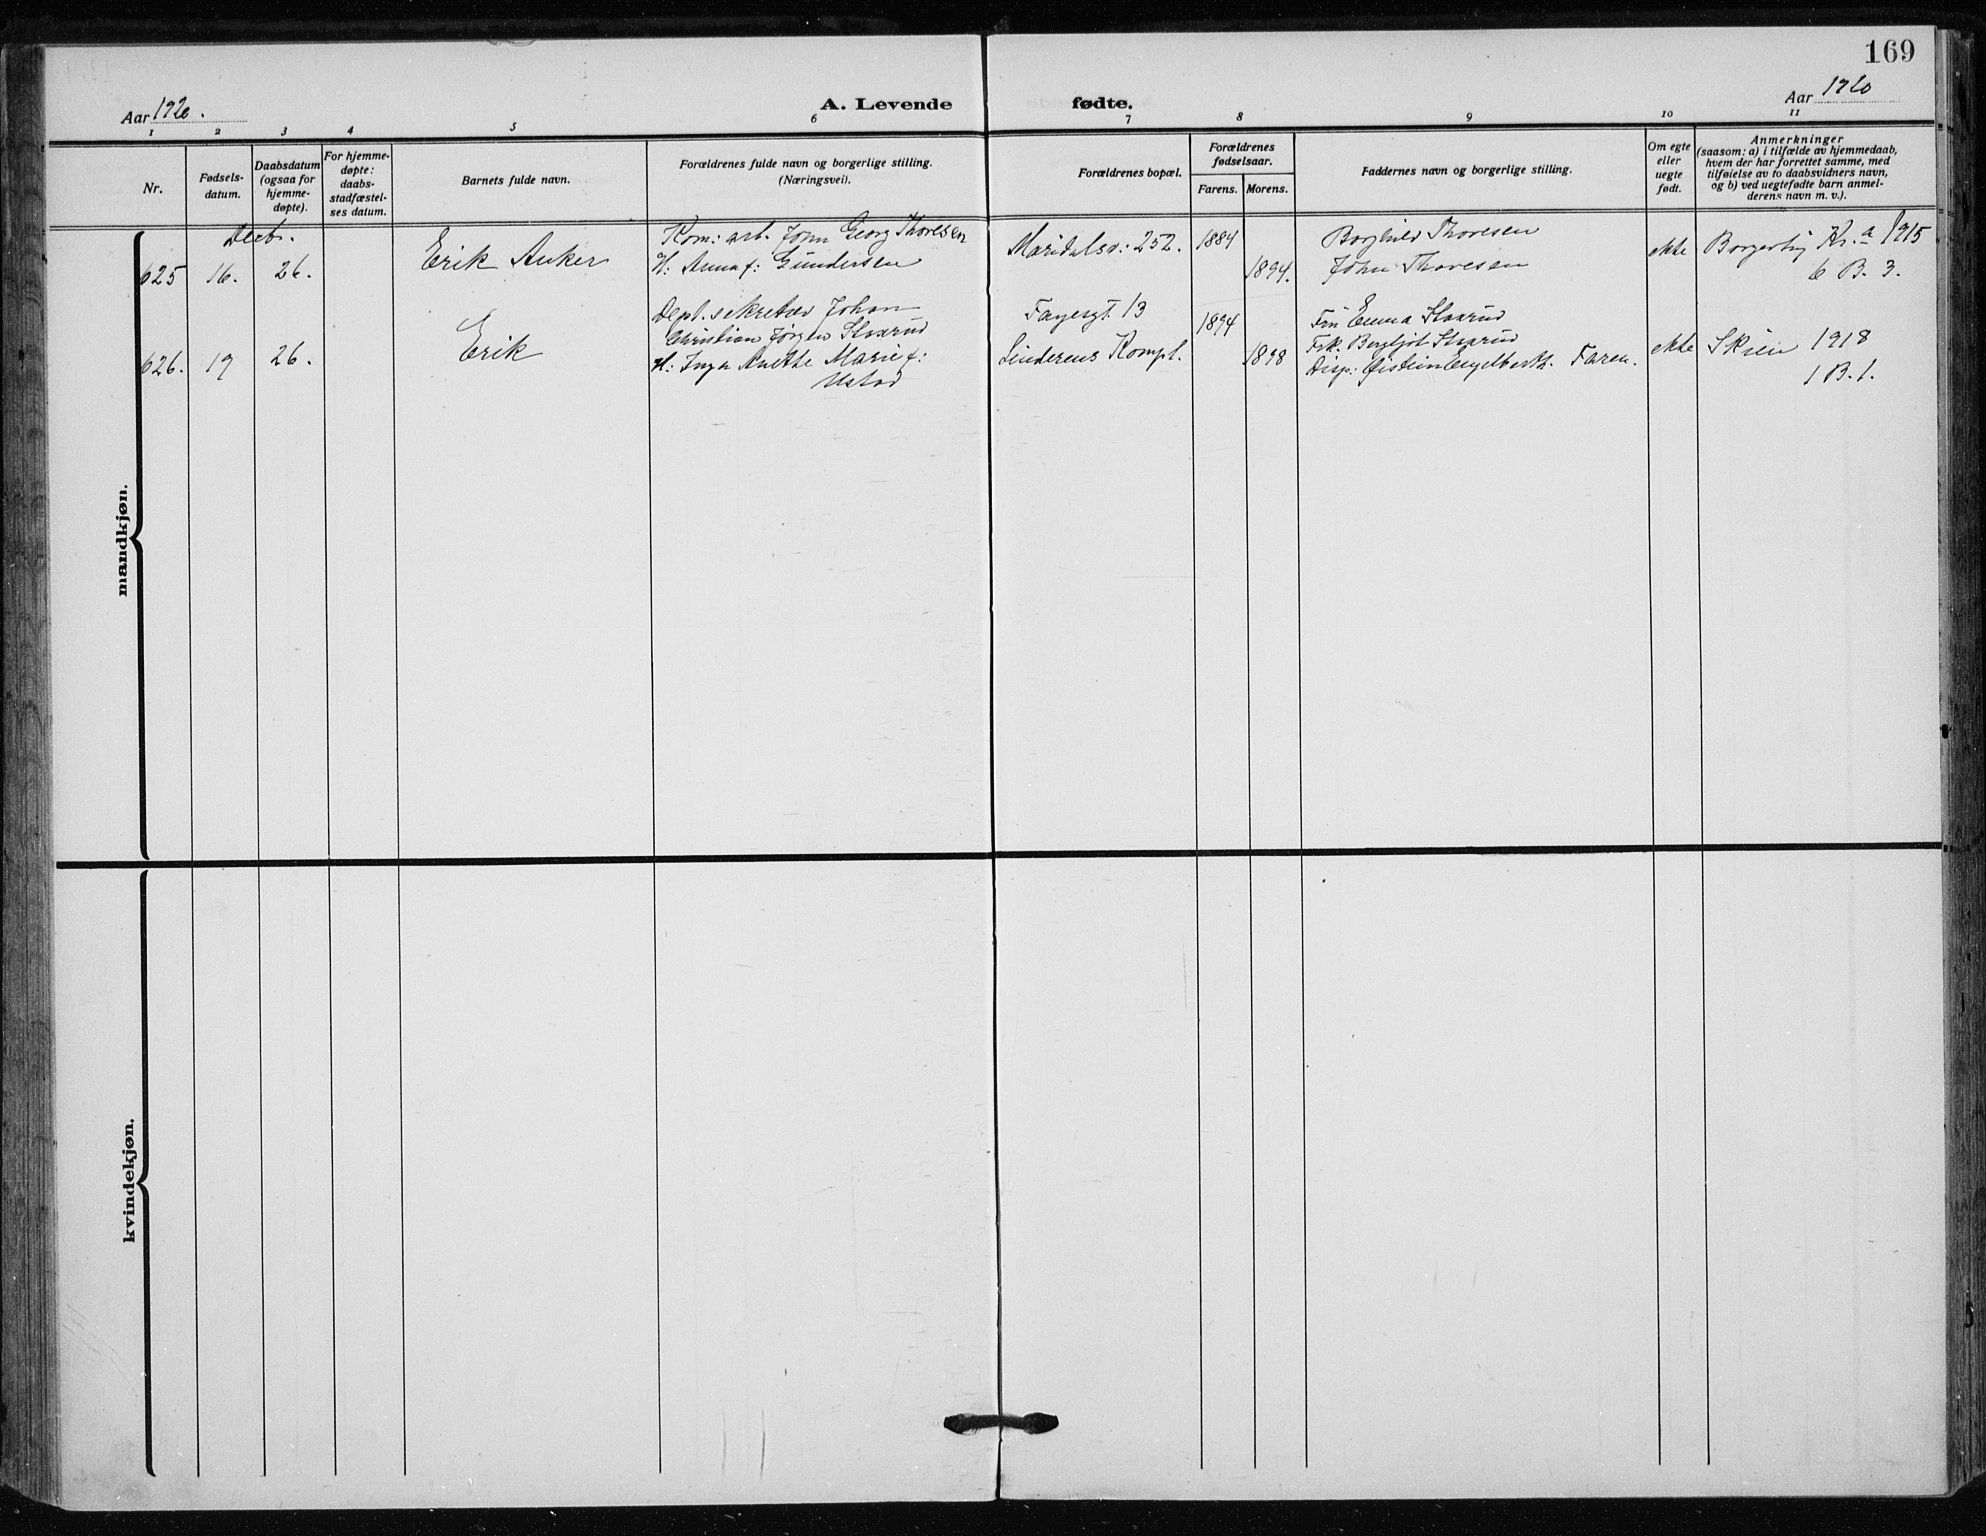 169
Aar 1920.
A. Levende fødte.
Aar 1920
1 2 3 4 5 6 7 8 9 10 11
Nr.
Fødsels-
datum.
Daabsdatum
(ogsaa for
hjemme-
døpte).
For hjemme-
døpte:
daabs-
stadfæstel-
ses datum.
Barnets fulde navn.
Forældrenes fulde navn og borgerlige stilling.
(Næringsvei).
Forældrenes bopæl.
Forældrenes
fødselsaar.
Farens. Morens.
Faddernes navn og borgerlige stilling.
Om egte
eller
uegte
født.
Anmerkninger
(saasom: a) i tilfælde av hjemmedaab,
hvem der har forrettet samme, med
tilføielse av to daabsvidners navn,
og b) ved uegtefødte barn anmel-
derens navn m. v.).
mandkjøn.
Decb.
625 16. 26.
Erik Anker
Kom: arb. John Georg Thoresen
H: Anna f: Gundersen
Maridalsv: 252.
1884
1894.
Borghild Thoresen
John Thoresen
ekte
Kr.a 1915
6 B. 3.
626. 19 26.
Erik
Dept. sekretær Johan
Christian Jørgen Staxrud
H: Inga Anette Marie f:
Ustad
Fagesgt 13
Linderens Kompl.
1894
1898
Fru Emma Staxrud
Frk. Bergljot Staxrud
Disp: Øistein Engelbreth. Faren.
ekte
Skien 1918
1 B. 1.
kvindekjøn.